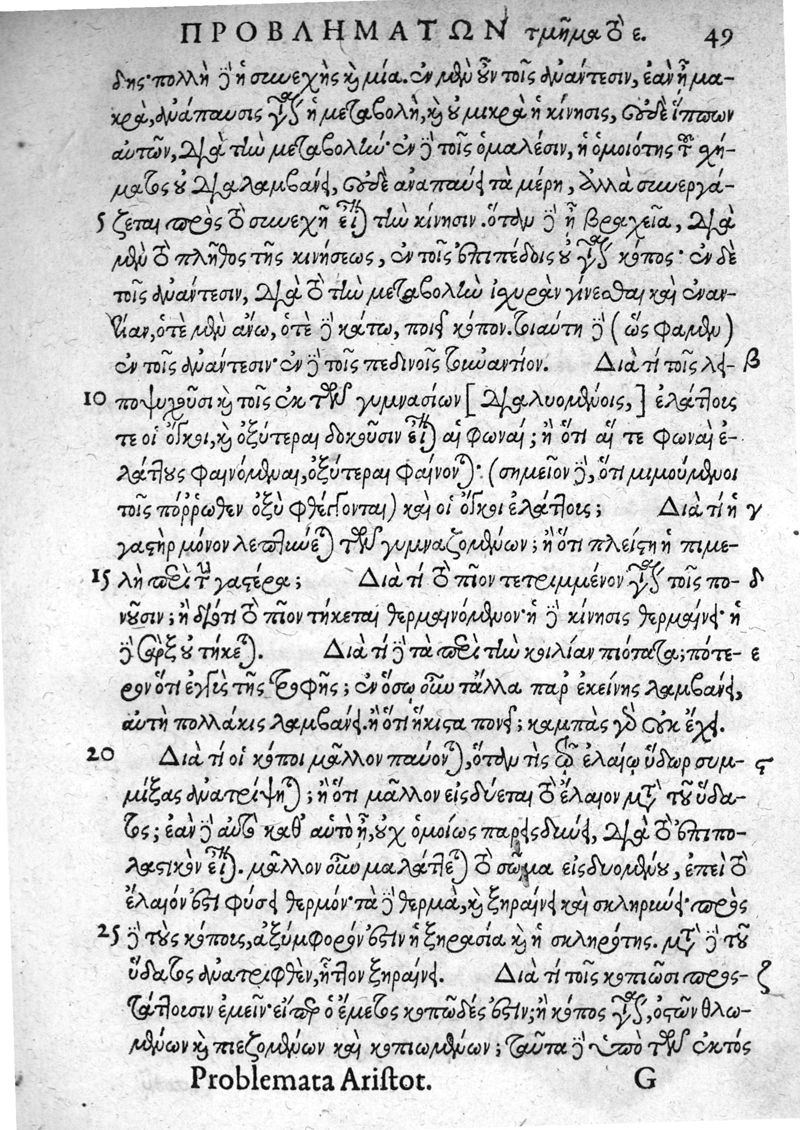 ΠΡΟΒΛΗΜΑΤΩΝ τμῆμα τὸ ε. 49
δης· πολλὴ δὲ ἡ συνεχὴς καὶ μία. ἐν μὲν οὖν τοῖς ἀνάντεσιν, ἐὰν ᾖ μα-
κρὰ, ἀνάπαυσις γίνεται ἡ μεταβολὴ, καὶ οὐ μικρὰ ἡ κίνησις, οὐδὲ ἵππων
αὐτῶν, διὰ τὴν μεταβολήν· ἐν δὲ τοῖς ὁμαλέσιν, ἡ ὁμοιότης τοῦ χή-
ματος οὐ διαλαμβάνει, οὐδὲ ἀναπαύει τὰ μέρη, ἀλλὰ συνεργά-
5 ζεται πρὸς τὸ συνεχῆ εἶναι τὴν κίνησιν. ὅταν δὲ ᾖ βραχεῖα, διὰ
μὲν τὸ πλῆθος τῆς κινήσεως, ἐν τοῖς ἐπιπέδοις οὐ γίνεται κόπος· ἐν δὲ
τοῖς ἀνάντεσιν, διὰ τὸ τὴν μεταβολὴν ἰχυρὰν γίνεσθαι καὶ ἐναν-
τίαν, ὁτὲ μὲν ἄνω, ὁτὲ δὲ κάτω, ποιεῖ κόπον. τοιαύτη δὲ (ὥς φαμεν)
ἐν τοῖς ἀνάντεσιν· ἐν δὲ τοῖς πεδινοῖς τοὐναντίον. Διὰ τί τοῖς λει- β
10 ποψυχοῦσι καὶ τοῖς ἐκ τῶν γυμνασίων [διαλυομένοις,] ἐλάττους
τε οἱ ὄγκοι, καὶ ὀξύτεραι δοκοῦσιν εἶναι αἱ φωναί; ἢ ὅτι αἵ τε φωναὶ ἐ-
λάττους φαινόμεναι, ὀξύτεραι φαίνονται· (σημεῖον δὲ, ὅτι μιμούμενοι
τοῖς πόῤῥωθεν ὀξὺ φθέγγονται) καὶ οἱ ὄγκοι ἐλάττους; Διὰ τί ἡ γ
γαστὴρ μόνον λεπτύνεται τῶν γυμναζομένων; ἢ ὅτι πλείστη ἡ πιμε-
15 λὴ περὶ τὴν γαστέρα; Διὰ τί τὸ πῖον τετριμμένον γίνεται τοῖς πο- δ
νοῦσιν; ἢ διότι τὸ πῖον τήκεται θερμαινόμενον· ἡ δὲ κίνησις θερμαίνει· ἡ
δὲ σὰρξ οὐ τήκεται. Διὰ τί δὲ τὰ περὶ τὴν κοιλίαν πιότατα; πότε- ε
ρον ὅτι ἐγγὺς τῆς τροφῆς; ἐν ὅσῳ οὖν τἄλλα παρ' ἐκείνης λαμβάνει,
αὐτὴ πολλάκις λαμβάνει. ἢ ὅτι ἥκιστα πονεῖ; καμπὰς γὰρ οὐκ ἔχει.
20 Διὰ τί οἱ κόποι μᾶλλον παύονται, ὅταν τις τῷ ἐλαίῳ ὕδωρ συμ- ϛ
μίξας ἀνατρίψηται; ἢ ὅτι μᾶλλον εἰσδύεται τὸ ἔλαιον μετὰ τοῦ ὕδα-
τος; ἐὰν δὲ αὐτὸ καθ' αὑτὸ ᾖ, οὐχ ὁμοίως παρεισδύνει, διὰ τὸ ἐπιπο-
λαστικὸν εἶναι. μᾶλλον οὖν μαλάττεται τὸ σῶμα εἰσδυομένου, ἐπεὶ τὸ
ἔλαιόν ἐστι φύσει θερμόν· τὰ δὲ θερμὰ, καὶ ξηραίνει καὶ σκληρύνει· πρὸς
25 δὲ τοὺς κόπους, ἀξύμφορόν ἐστιν ἡ ξηρασία καὶ ἡ σκληρότης. μετὰ δὲ τοῦ
ὕδατος ἀνατριφθὲν, ἧττον ξηραίνει. Διὰ τί τοῖς κοπιῶσι προς- ζ
τάττουσιν ἐμεῖν· εἴπερ ὁ ἔμετος κοπῶδές ἐστιν; ἢ κόπος γίνεται, ὀστῶν θλω-
μένων καὶ πιεζομένων καὶ κοπιωμένων; ταῦτα δὲ ὑπὸ τῶν ἐκτός
Problemata Aristot. G